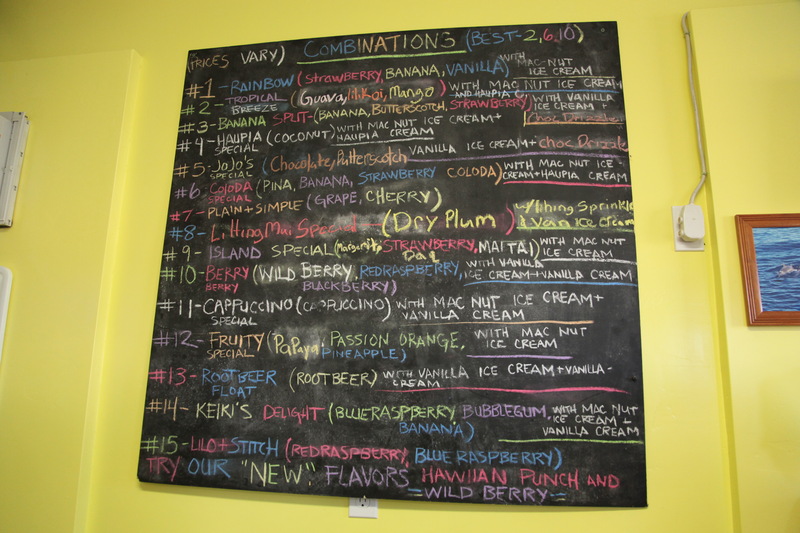 (PRICES VARY) COMBINATIONS (BEST-2,6,10)
#1-RAINBOW (STRAWBERRY, BANANA, VANILLA) WITH MAC-NUT ICE CREAM
#2-TROPICAL BREEZE (Guava, lilikoi, Mango) WITH MAC NUT ICE CREAM AND HAUPIA
#3-BANANA SPLIT-(BANANA, BUTTERSCOTCH, STRAWBERRY) WITH VANILLA ICE CREAM + Choc Drizzle
#4-HAUPIA SPECIAL (COCONUT) WITH MAC NUT ICE CREAM + HAUPIA CREAM
#5-JoJo's SPECIAL (Chocolate, Butterscotch VANILLA ICE CREAM + choc Drizzle
#6-COLODA SPECIAL (PINA, BANANA, STRAWBERRY COLODA) WITH MAC NUT ICE-CREAM + HAUPIA CREAM
#7-PLAIN + SIMPLE (GRAPE, CHERRY)
#8-Li Hing Mui Special-(Dry Plum) w/ lihing Sprinkle & Van Ice Cream
#9-ISLAND SPECIAL (Margarita, STRAWBERRY DAQ, MAITAI) WITH MAC NUT ICE CREAM
#10-BERRY BERRY (WILD BERRY, RED RASPBERRY, BLACKBERRY) WITH VANILLA ICE CREAM + VANILLA CREAM
#11-CAPPUCCINO SPECIAL (CAPPUCCINO) WITH MAC NUT ICE CREAM + VANILLA CREAM
#12-FRUITY SPECIAL (PaPaya, PASSION ORANGE, PINEAPPLE) WITH MAC NUT ICE CREAM
#13-ROOTBEER FLOAT (ROOTBEER) WITH VANILLA ICE CREAM + VANILLA-CREAM
#14-KEIKI'S DELIGHT (BLUERASPBERRY, BUBBLEGUM, BANANA) WITH MAC NUT ICE CREAM + VANILLA CREAM
#15-LILO + STITCH (RED RASPBERRY, BLUE RASPBERRY)
TRY OUR "NEW" FLAVORS HAWIIAN PUNCH AND
=WILD BERRY=